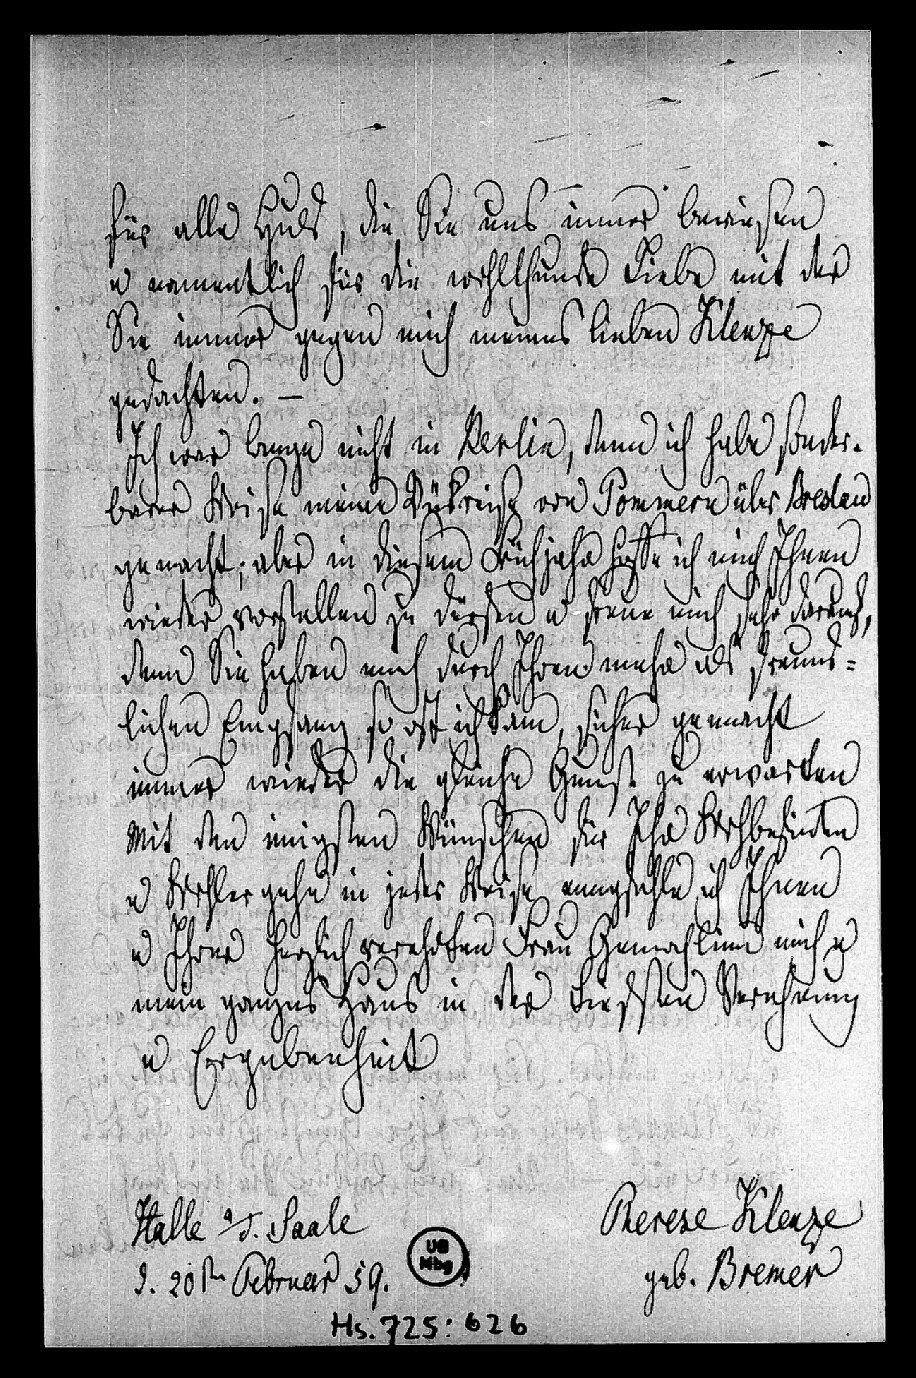 für alle Huld, die Sie uns immer bewiesen
u namentlich für die wohlthuende Liebe mit der
Sie immer gegen mich meines lieben Klenze
gedachten. —
Ich war lange nicht in Berlin, denn ich habe sonder-
barer Weise meine Rükreise von Pommern über Breslau
gemacht; aber in diesem Frühjahr hoffe ich mich Ihnen
wieder vorstellen zu dürfen u freue mich sehr darauf,
denn Sie haben mich durch Ihren mehr als freund=
lichen Empfang so oft ich kam, sicher gemacht
immer wieder die gleiche Gunst zu erwarten
Mit den innigsten Wünschen für Ihr Wohlbefinden
u Wohlergehn in jeder Weise empfehle ich Ihnen
u Ihrer herzlich verehrten Frau Gemahlinn mich u
mein ganzes Haus in der tiefsten Verehrung
u Ergebenheit
Halle a d. Saale
d. 20ten Februar 59.
Therese Klenze
geb. Bremer
UB
Mbg
Hs. 725: 626